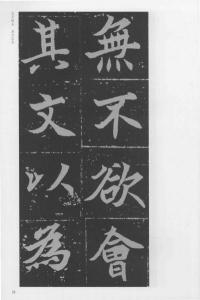 無不欲會
其文以為